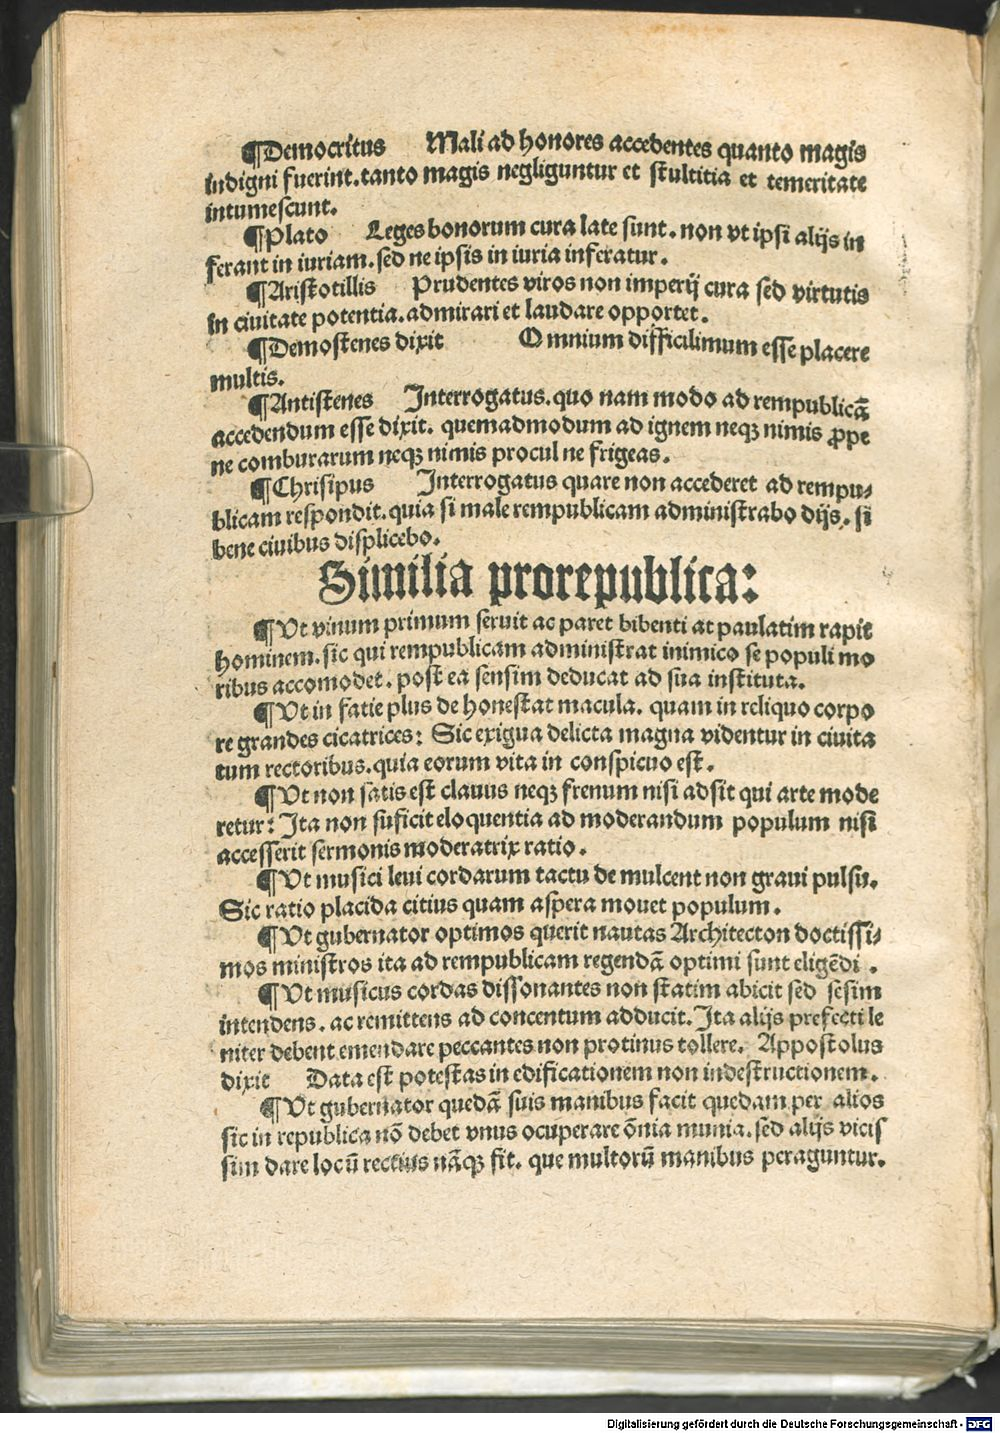 ¶Democritus Mali ad honores accedentes quanto magis
indigni fuerint.tanto magis negliguntur et stultitia et temeritate
intumescunt.
¶Plato Leges bonorum cura late sunt. non vt ipsi alijs in
ferant in iuriam.sed ne ipsis in iuria inferatur.
¶Aristotillis Prudentes viros non imperij cura sed virtutis
in ciuitate potentia.admirari et laudare opportet.
¶Demostenes dixit Omnium difficilimum esse placere
multis.
¶Antistenes Interrogatus.quo nam modo ad rempublicā
accedendum esse dixit. quemadmodum ad ignem neqꝫ nimis ꝓpe
ne comburarum neqꝫ nimis procul ne frigeas.
¶Chrisipus Interrogatus quare non accederet ad rempu⸗
blicam respondit.quia si male rempublicam administrabo dijs. si
bene ciuibus displicebo.
Similia prorepublica:
¶Vt vinum primum seruit ac paret bibenti at paulatim rapit
hominem.sic qui rempublicam administrat inimico se populi mo
ribus accomodet. post ea sensim deducat ad sua instituta.
¶Vt in fatie plus de honestat macula. quam in reliquo corpo
re grandes cicatrices: Sic exigua delicta magna videntur in ciuita
tum rectoribus.quia eorum vita in conspicuo est.
¶Vt non satis est clauus neqꝫ frenum nisi adsit qui arte mode
retur: Ita non suficit eloquentia ad moderandum populum nisi
accesserit sermonis moderatrix ratio.
¶Vt musici leui cordarum tactu de mulcent non graui pulsu.
Sic ratio placida citius quam aspera mouet populum.
¶Vt gubernator optimos querit nautas Architecton doctissi⸗
mos ministros ita ad rempublicam regendā optimi sunt eligēdi.
¶Vt musicus cordas dissonantes non statim abicit sed sesim
intendens. ac remittens ad concentum adducit. Ita alijs prefecti le
niter debent emendare peccantes non protinus tollere. Appostolus
dixit Data est potestas in edificationem non indestructionem.
¶Vt gubernator quedā suis manibus facit quedam per alios
sic in republica nō debet vnus ocuperare ōnia munia.sed alijs vicis
sim dare locū rectius nāqꝫ fit. que multorū manibus peraguntur.
Digitalisierung gefördert durch die Deutsche Forschungsgemeinschaft - DFG